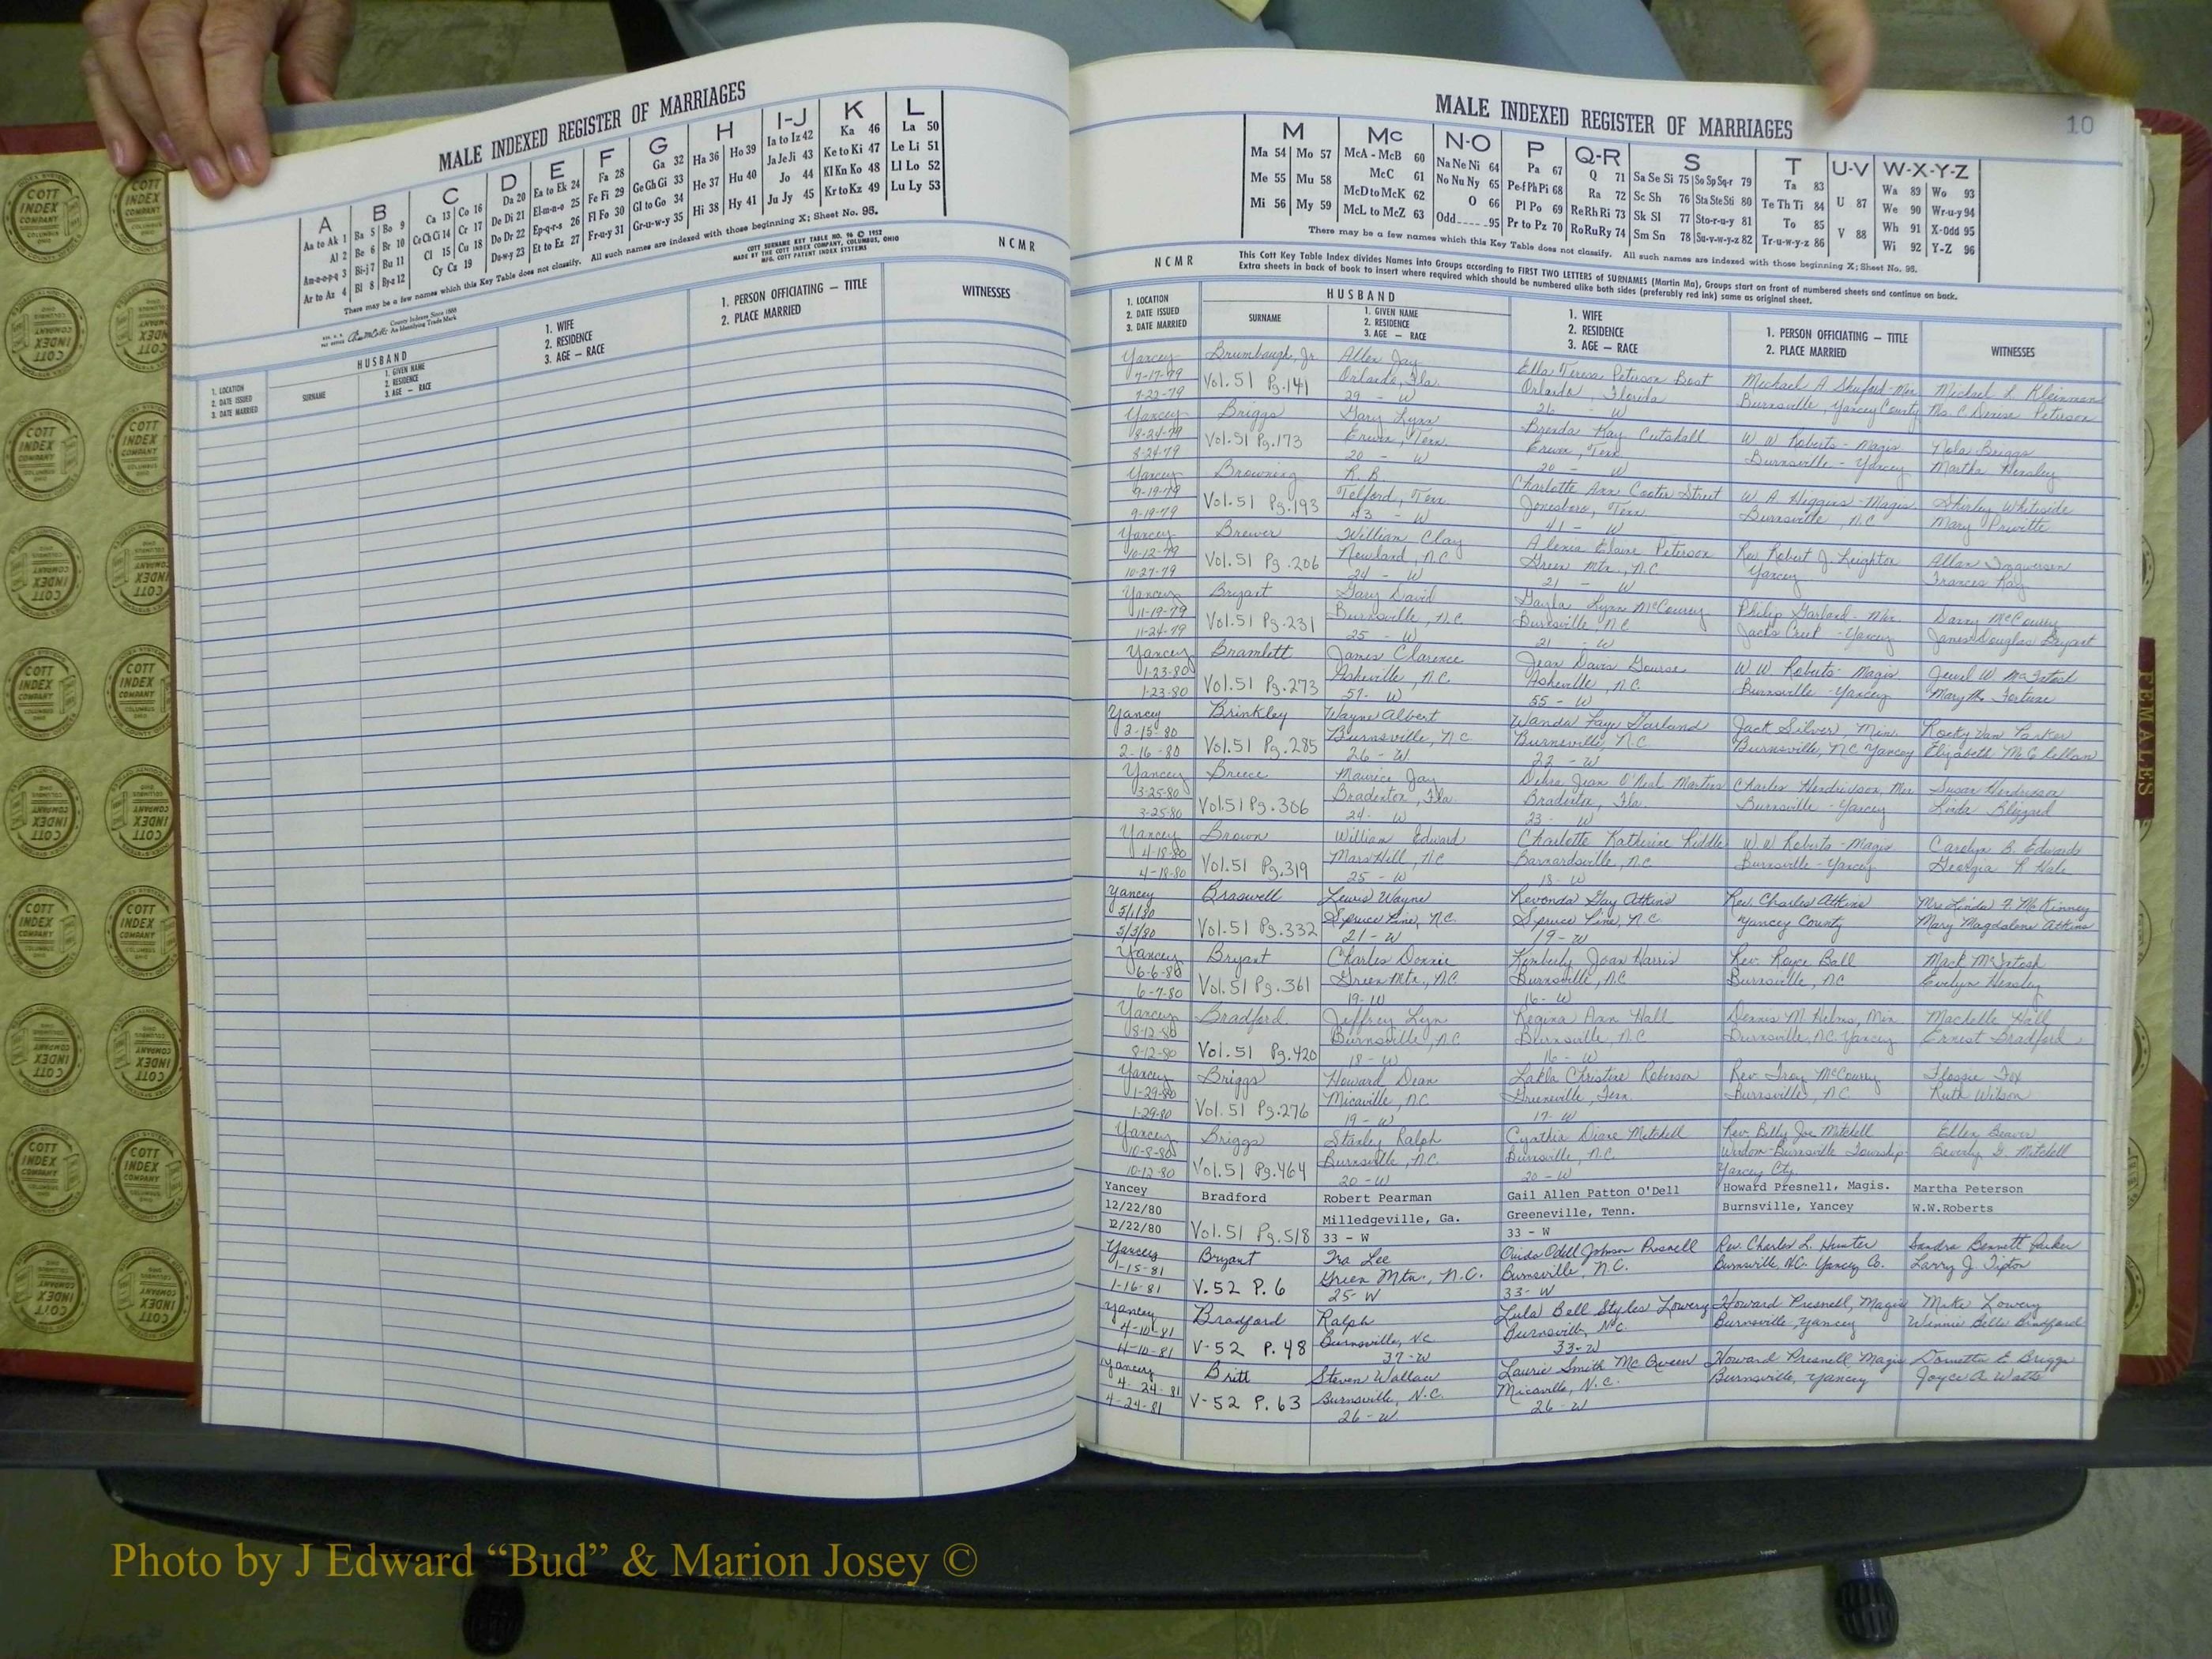 MALE INDEXED REGISTER OF MARRIAGES
A B C D E F G H I-J K L
Aa to Ak 1 Ba 5 Bo 9 Ca 13 Co 16 Da 20 Ea to Ek 24 Fa 28 Ga 32 Ha 36 Ho 39 Ia to Iz 42 Ka 46 La 50
Al 2 Be 6 Br 10 Ce Ch Ci 14 Cr 17 De Di 21 El-m-n-o 25 Fe Fi 29 Ge Gh Gi 33 He 37 Hu 40 Ja Je Ji 43 Ke to Ki 47 Le Li 51
Am-n-o-p-q 3 Bi-j 7 Bu 11 Cl 15 Cu 18 Do Dr 22 Ep-q-r-s 26 Fl Fo 30 Gl to Go 34 Hi 38 Hy 41 Jo 44 Kl Kn Ko 48 Ll Lo 52
Ar to Az 4 Bl 8 By-z 12 Cy Cz 19 Du-w-y 23 Et to Ez 27 Fr-u-y 31 Gr-u-w-y 35 Ju Jy 45 Kr to Kz 49 Lu Ly 53
There may be a few names which this Key Table does not classify. All such names are indexed with those beginning X; Sheet No. 95.
COTT SURNAME KEY TABLE NO. 96 © 1952
MADE BY THE COTT INDEX COMPANY, COLUMBUS, OHIO
MFG. COTT PATENT INDEX SYSTEMS
NCMR
County Indexes Since 1888
An Identifying Trade Mark
HUSBAND
1. LOCATION
2. DATE ISSUED
3. DATE MARRIED
SURNAME
1. GIVEN NAME
2. RESIDENCE
3. AGE — RACE
1. WIFE
2. RESIDENCE
3. AGE — RACE
1. PERSON OFFICIATING — TITLE
2. PLACE MARRIED
WITNESSES
MALE INDEXED REGISTER OF MARRIAGES
10
M Mc N-O P Q-R S T U-V W-X-Y-Z
Ma 54 Mo 57 McA - McB 60 Na Ne Ni 64 Pa 67 Q 71 Sa Se Si 75 So Sp Sq-r 79 Ta 83 Wa 89 Wo 93
Me 55 Mu 58 McC 61 No Nu Ny 65 Pe-f Ph Pi 68 Ra 72 Sc Sh 76 Sta Ste Sti 80 Te Th Ti 84 U 87 We 90 Wr-u-y 94
Mi 56 My 59 McD to McK 62 O 66 Pl Po 69 Re Rh Ri 73 Sk Sl 77 Sto-r-u-y 81 To 85 V 88 Wh 91 X-Odd 95
McL to McZ 63 Odd 95 Pr to Pz 70 Ro Ru Ry 74 Sm Sn 78 Su-v-w-y-z 82 Tr-u-w-y-z 86 Wi 92 Y-Z 96
There may be a few names which this Key Table does not classify. All such names are indexed with those beginning X; Sheet No. 95.
NCMR
This Cott Key Table Index divides Names into Groups according to FIRST TWO LETTERS of SURNAMES (Martin Ma), Groups start on front of numbered sheets and continue on back.
Extra sheets in back of book to insert where required which should be numbered alike both sides (preferably red ink) same as original sheet.
HUSBAND
1. LOCATION
2. DATE ISSUED
3. DATE MARRIED
SURNAME
1. GIVEN NAME
2. RESIDENCE
3. AGE — RACE
1. WIFE
2. RESIDENCE
3. AGE — RACE
1. PERSON OFFICIATING — TITLE
2. PLACE MARRIED
WITNESSES
Yancey Brumbaugh, Jr. Allen Jay Ella Teresa Peterson Best Michael A Shuford-Min Michael L. Kleinmann
7-17-79 Vol. 51 Pg. 141 Orlando, Fla Orlando, Florida Burnsville, Yancey County Ms. C. Denise Peterson
7-22-79 29 - W 26 - W
Yancey Briggs Gary Lynn Brenda Kay Cutshall W W Roberts - Magis Nola Briggs
8-24-79 Vol. 51 Pg. 173 Erwin, Tenn Erwin, Tenn Burnsville - Yancey Martha Hensley
8-24-79 20 - W 20 - W
Yancey Browning R. B. Charlotte Ann Cooter Street W. A. Higgins - Magis Shirley Whiteside
9-19-79 Vol. 51 Pg. 193 Telford, Tenn Jonesboro, Tenn Burnsville, N.C Mary Privette
9-19-79 43 - W 41 - W
Yancey Brewer William Clay Alexia Elaine Peterson Rev. Robert J. Leighton Allan
10-12-79 Vol. 51 Pg. 206 Newland, N.C Green Mtn., N.C. Yancey Frances Ray
10-27-79 24 - W 21 - W
Yancey Bryant Gary David Gayla Lynn McCourry Philip Garland - Min. Danny McCourry
11-19-79 Vol. 51 Pg. 231 Burnsville, N.C Burnsville NC Jacks Creek - Yancey James Douglas Bryant
11-24-79 25 - W 21 - W
Yancey Bramlett James Clarence Jean Davis W. W. Roberts - Magis Jewel W. McIntosh
1-23-80 Vol. 51 Pg. 273 Asheville, N.C. Asheville, N.C. Burnsville - Yancey Mary M. Fortune
1-23-80 57 - W 55 - W
Yancey Brinkley Wayne Albert Wanda Faye Garland Jack Silver, Min. Rocky Van Parker
2-15-80 Vol. 51 Pg. 285 Burnsville, NC Burnsville, N.C. Burnsville, NC Yancey Elizabeth McClellan
2-16-80 26 - W 22 - W
Yancey Breece Maurice Jay Debra Jean O'Neal Martin Charles Hendrixson, Min Susan Hendrixson
3-25-80 Vol. 51 Pg. 306 Bradenton, Fla Bradenton, Fla. Burnsville - Yancey Linda Blizzard
3-25-80 24 - W 23 - W
Yancey Brown William Edward Charlotte Katherine Riddle W. W. Roberts - Magis Carolyn B. Edwards
4-18-80 Vol. 51 Pg. 319 Mars Hill, NC Barnardsville, N.C. Burnsville - Yancey Georgia R Hale
4-18-80 25 - W 18 - W
Yancey Braswell Lewis Wayne Revonda Gay Atkins Rev. Charles Atkins Mrs Linda F. McKinney
5/1/80 Vol. 51 Pg. 332 Spruce Pine, N.C. Spruce Pine, N.C. Yancey County Mary Magdalene Atkins
5/3/80 21 - W 19 - W
Yancey Bryant Charles Donnie Kimberly Joan Harris Rev. Royce Ball Mack McIntosh
6-6-80 Vol. 51 Pg. 361 Green Mtn., N.C. Burnsville, N.C Burnsville, NC Evelyn Hensley
6-7-80 19 - W 16 - W
Yancey Bradford Jeffrey Lyn Regina Ann Hall Dennis M Helms, Min Machelle Hall
8-12-80 Vol. 51 Pg. 420 Burnsville, N.C Burnsville, N.C Burnsville, N.C. Yancey Ernest Bradford
8-12-80 18 - W 16 - W
Yancey Briggs Howard Dean Christine Robinson Rev. Troy McCourry Flossie Fox
1-29-80 Vol. 51 Pg. 276 Micaville, NC Greeneville, Tenn Burnsville, N.C Ruth Wilson
1-29-80 19 - W 17 - W
Yancey Briggs Stanley Ralph Cynthia Diane Mitchell Rev. Billy Joe Mitchell Ellen Beaver
10-8-80 Vol. 51 Pg. 464 Burnsville, N.C. Burnsville, N.C. Windom-Burnsville Township- Beverly G. Mitchell
10-12-80 20 - W 20 - W Yancey Cty.
Yancey Bradford Robert Pearman Gail Allen Patton O'Dell Howard Presnell, Magis. Martha Peterson
12/22/80 Milledgeville, Ga. Greeneville, Tenn. Burnsville, Yancey W.W.Roberts
12/22/80 Vol. 51 Pg. 518 33 - W 33 - W
Yancey Bryant Ira Lee Ouida Odell Johnson Presnell Rev. Charles L. Hunter Sandra Bennett Parker
1-15-81 Green Mtn., N.C. Burnsville, N.C. Burnsville, N.C. Yancey Co. Larry J. Tipton
1-16-81 V. 52 P. 6 25 - W 33 - W
Yancey Bradford Ralph Lula Bell Styles Lowery Howard Presnell, Magis Mike Lowery
4-10-81 V-52 P. 48 Burnsville, NC Burnsville, NC. Burnsville, Yancey Winnie Belle Bradford
4-10-81 37 - W 33 - W
Yancey Britt Steven Wallace Laurie Smith McQueen Howard Presnell Magis Dornetta E Briggs
4-24-81 V-52 P. 63 Burnsville, N.C. Micaville, N.C. Burnsville, Yancey Joyce A. Watts
4-24-81 26 - W 26 - W
FEMALES
COTT INDEX COMPANY COLUMBUS OHIO
Photo by J Edward “Bud” & Marion Josey ©